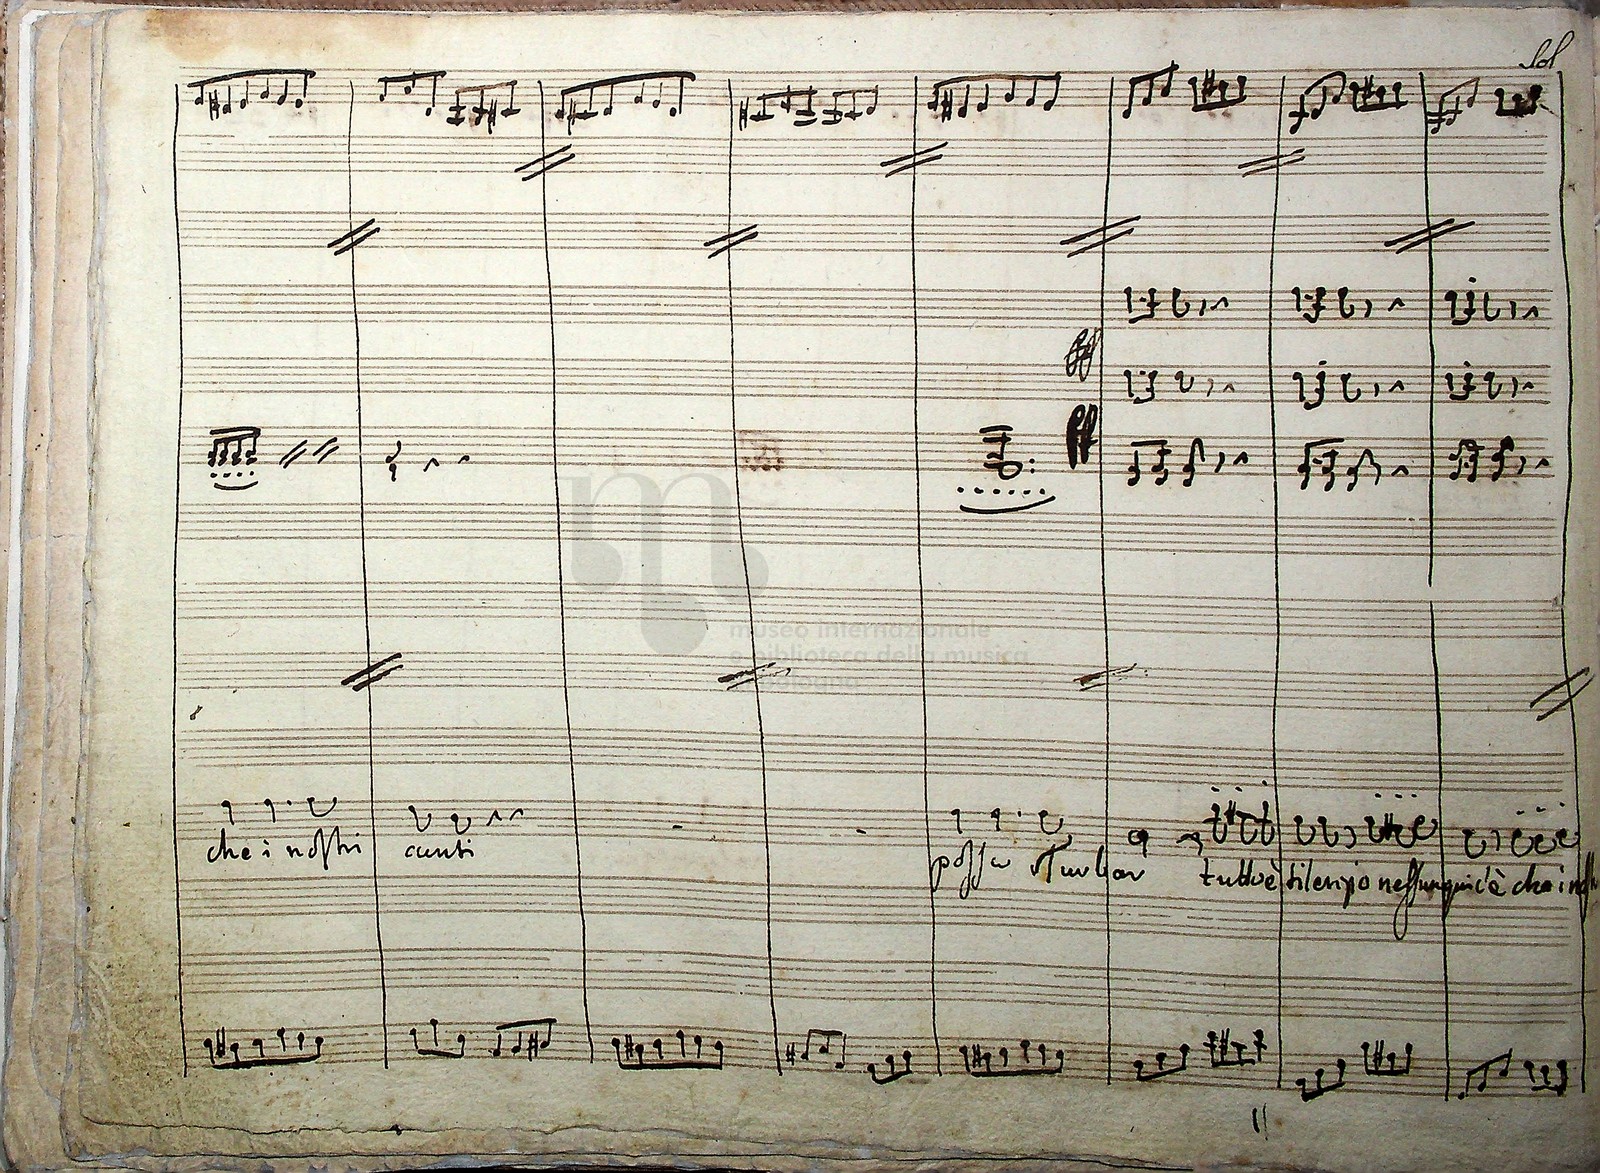 101
ff
ff
museo internazionale
e biblioteca della musica
di bologna
che i nostri canti possa sturbar tutto è silenzio nessun qui c'è che i nos